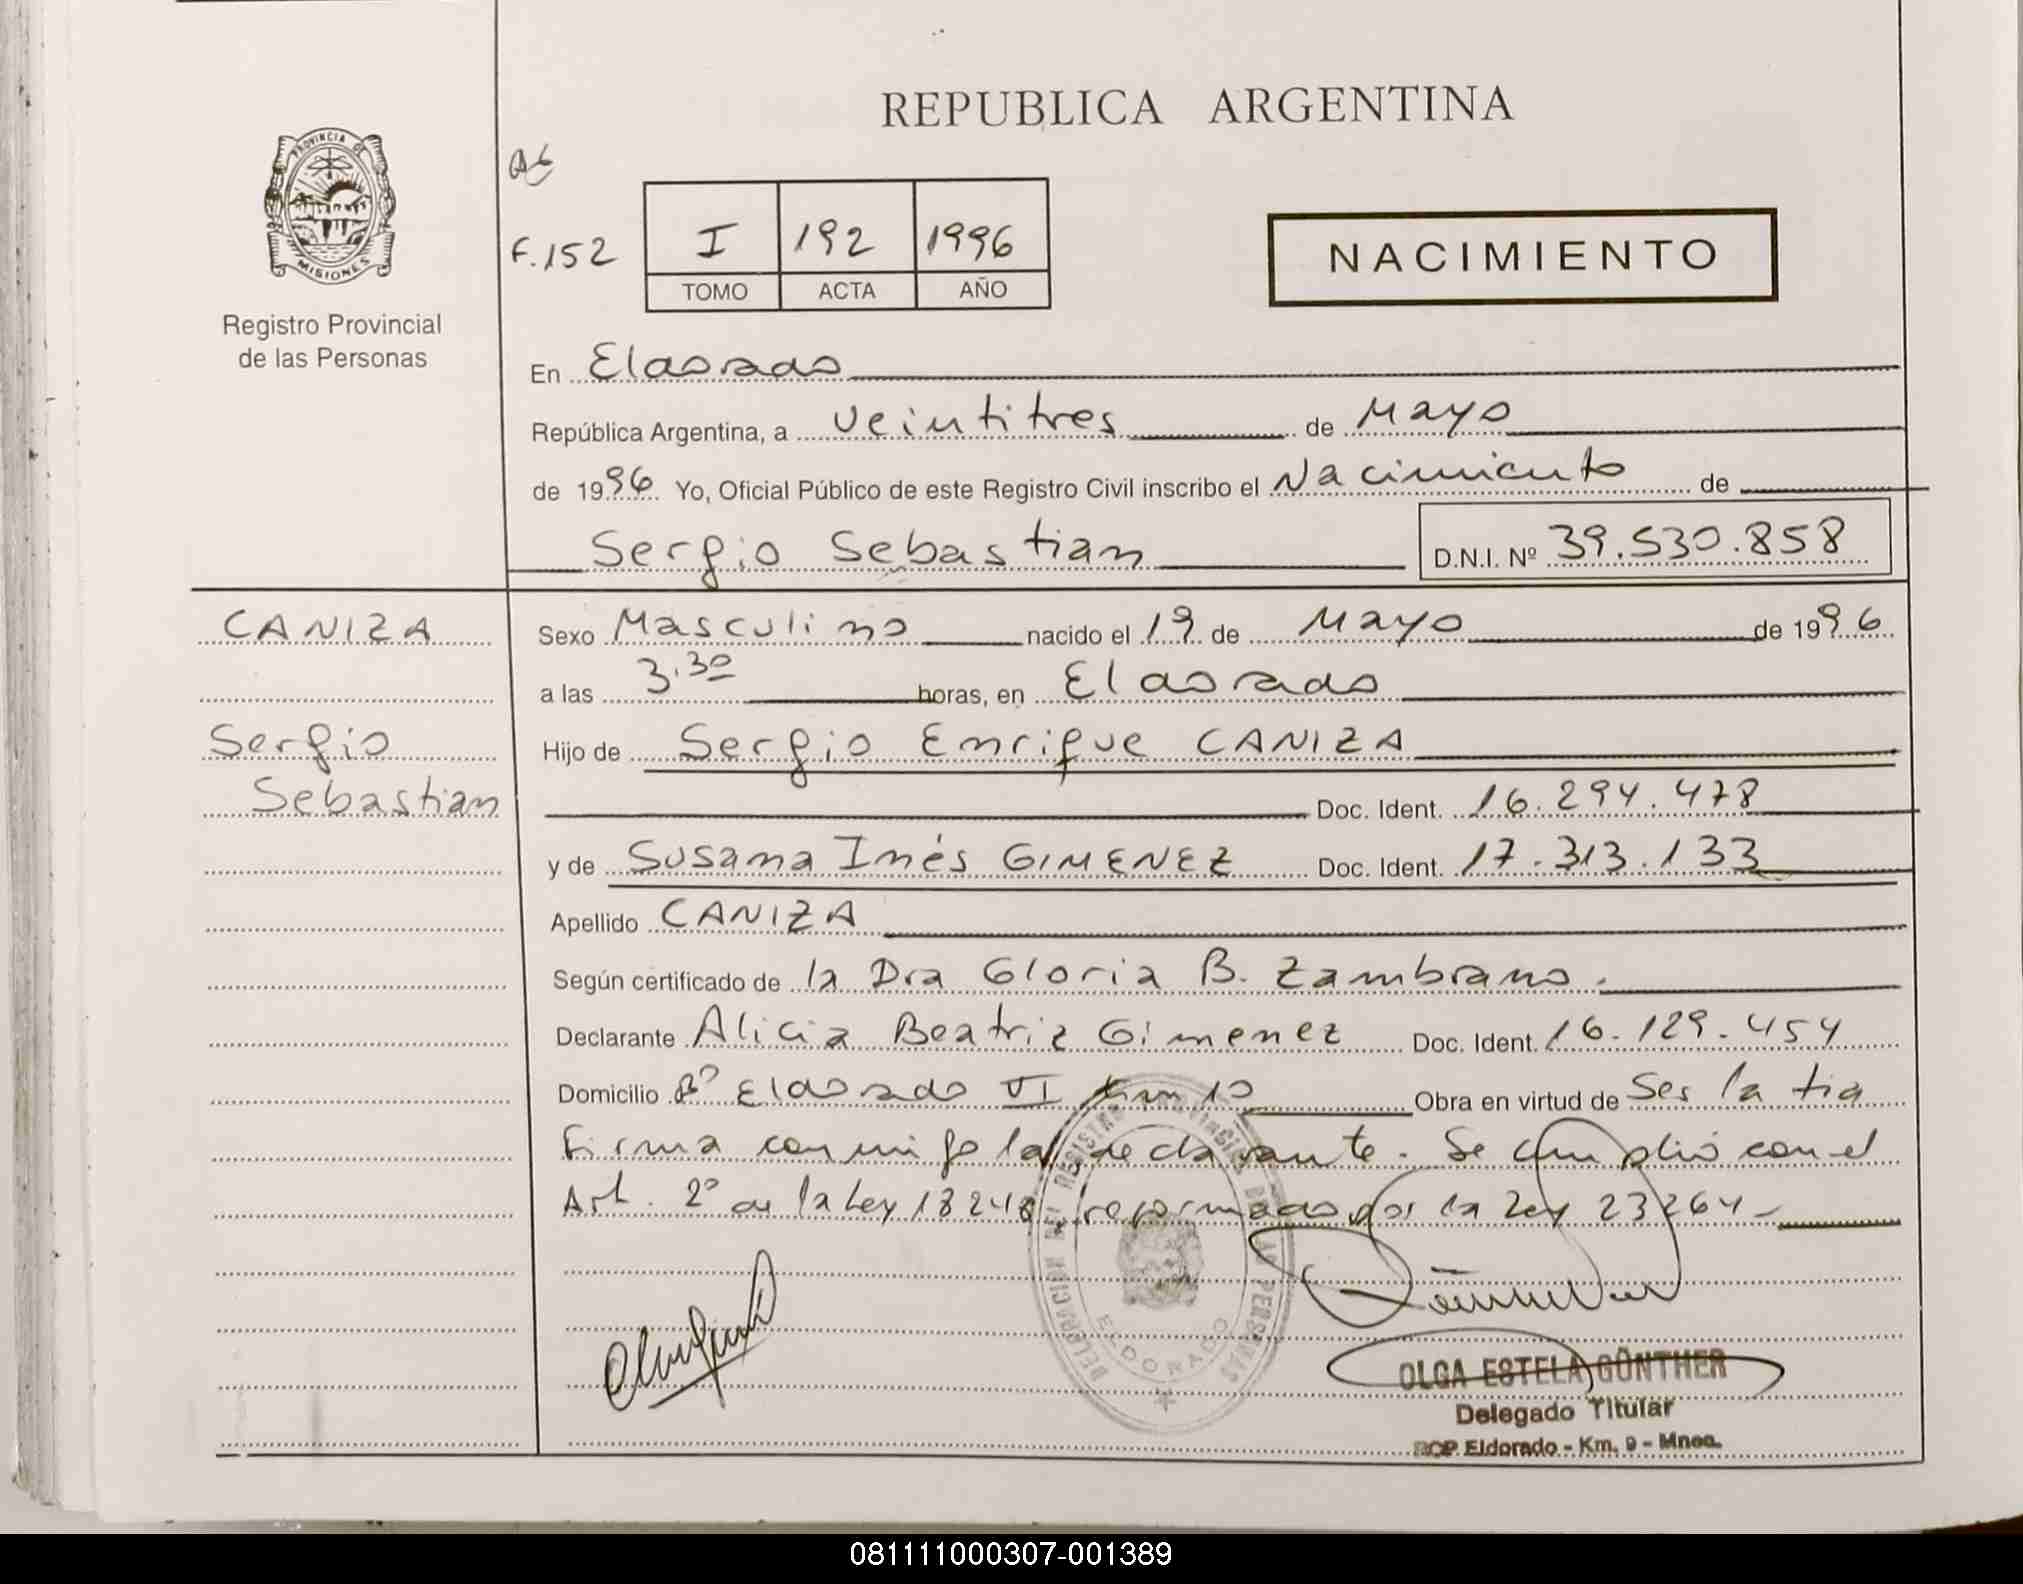 REPUBLICA ARGENTINA
PROVINCIA DE
MISIONES
Registro Provincial
de las Personas
F.152
I 192 1996
TOMO ACTA AÑO
NACIMIENTO
En Eldorado
República Argentina, a veintitres de Mayo
de 1996 Yo, Oficial Público de este Registro Civil inscribo el Nacimiento de
Sergio Sebastian D.N.I. Nº 39.530.858
CANIZA
Sergio
Sebastian
Sexo Masculino nacido el 19 de Mayo de 1996
a las 3.30 horas, en Eldorado
Hijo de Sergio Enrique CANIZA
Doc. Ident. 16.294.478
y de Susana Inés GIMENEZ Doc. Ident. 17.313.133
Apellido CANIZA
Según certificado de la Dra Gloria B. Zambrano.
Declarante Alicia Beatriz Gimenez Doc. Ident. 16.129.454
Domicilio Bº Eldorado VI Km 10 Obra en virtud de Ser la tia
Firma conmigo la declarante. Se cumplió con el
Art. 2º de la Ley 18248 reformado por la Ley 23264-
DELEGACION DEL REGISTRO PROVINCIAL DE LAS PERSONAS
ELDORADO
OLGA ESTELA GÜNTHER
Delegado Titular
RCP. Eldorado - Km. 9 - Mnes.
081111000307-001389